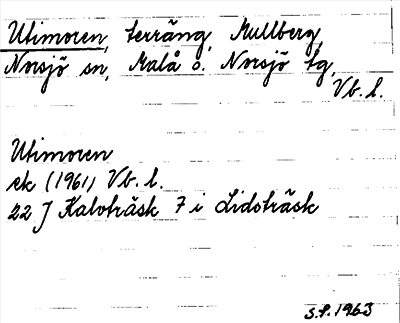 Utimoren, terräng, Mullberg,
Norsjö sn, Malå o. Norsjö tg,
Vb. l.
Utimoren
ek (1961) Vb. l.
22 J Kalvträsk 7 i Lidsträsk
S.P. 1963